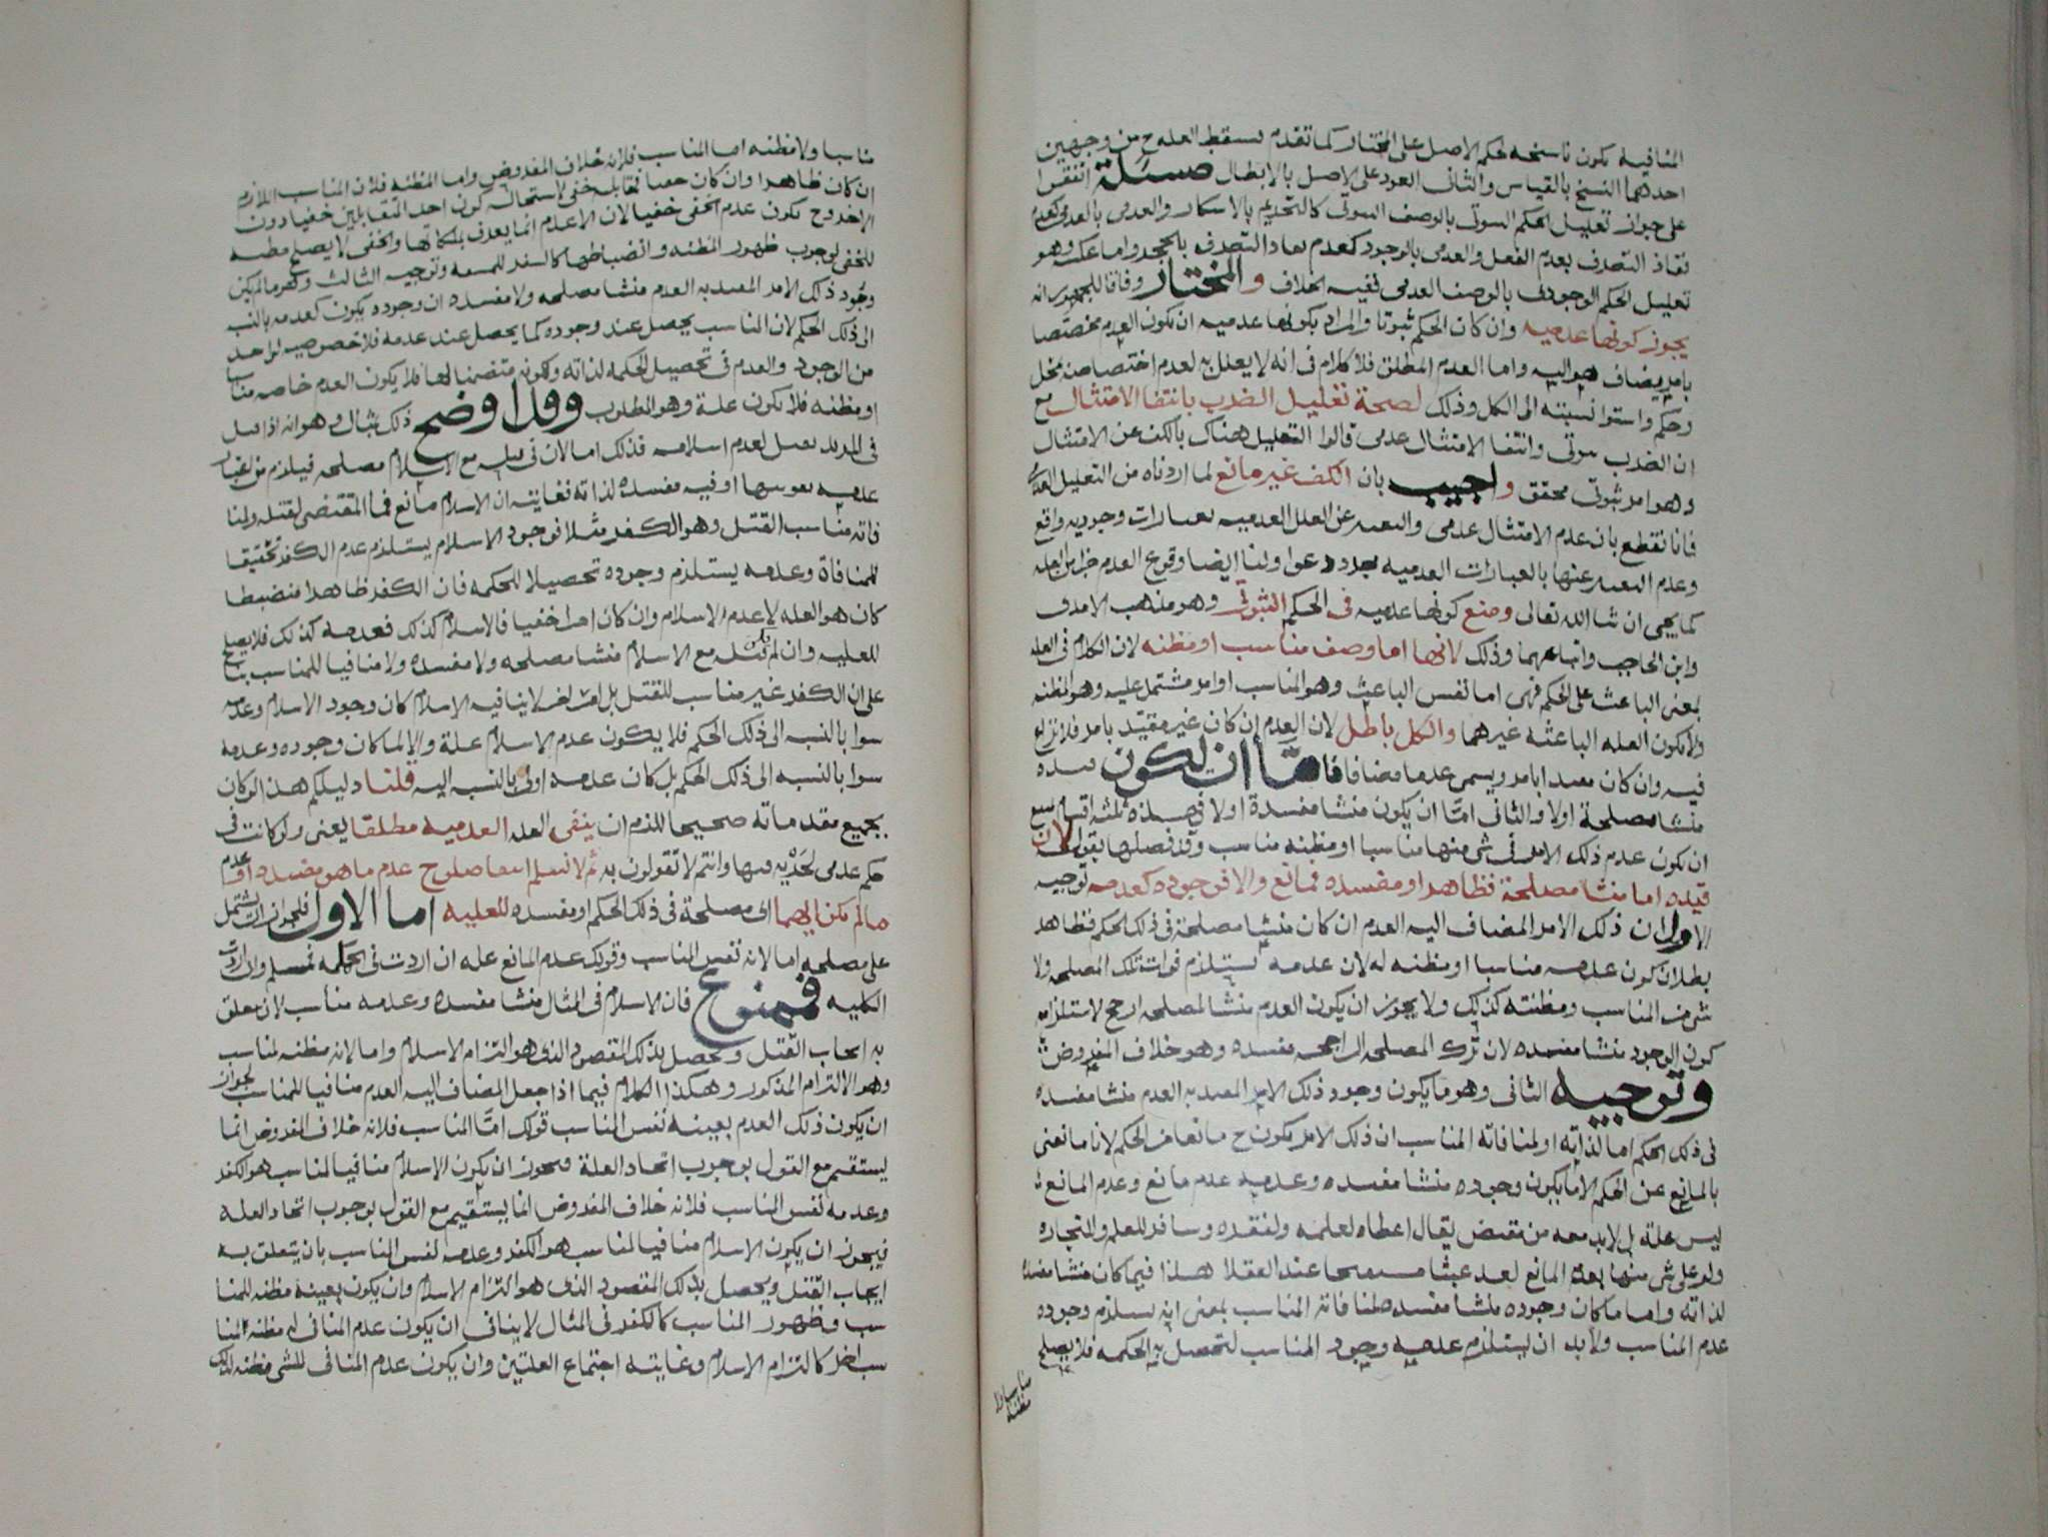 المنافية يكون ناسخه لحكم الاصل على المختار كما تقدم فسقط العله ح من وجهين
احدهما النسخ بالقياس والثانى العود على الاصل بالابطال مسئلة اتفقوا
على جواز تعليل الحكم الثبوتى بالوصف الثبوتى كالتحريم بالاسكار والعدمى بالعدمى كعدم
نفاذ التصرف بعدم الفعل والعدمى بالوجود كعدم نفاذ التصرف بالحجر واما عكسه وهو
تعليل الحكم الوجودى بالوصف العدمى ففيه الخلاف والمختار وفاقا للجمهور انه
يجوز كونها عدميه وان كان الحكم ثبوتا والمراد بكونها عدميه ان يكون العدم مختصا
بامر يضاف هو اليه واما العدم المطلق فلا كلام فى انه لا يعلل به لعدم اختصاصه بمحل
وحكم واستوا نسبته الى الكل وذلك لصحة تعليل الضرب بانتفا الامتثال مع
ان الضرب ثبوتى وانتفا الامتثال عدمى قالوا التعليل هناك بالكف عن الامتثال
وهو امر ثبوتى محقق واجيب بان الكف غير مانع لما اردناه من التعليل
فانا نقطع بان عدم الامتثال عدمى والتعبير عن العلل العدميه بعبارات وجوديه واقع
وعدم التعبير عنها بالعبارات العدميه مجرد دعوى ولنا ايضا وقوع العدم جزا من العله
كما يجى ان شا الله تعالى ومنع كونها عدميه فى الحكم الثبوتى وهو مذهب الامدى
وابن الحاجب واتباعهما وذلك لانها اما وصف مناسب او مظنه لان الكلام فى العله
بمعنى الباعث على الحكم فهى اما نفس الباعث وهو المناسب او امر مشتمل عليه وهو المظنه
ولا يكون العله الباعثه غيرهما والكل باطل لان العدم ان كان غير مقيد بامر فلا نزاع
فيه وان كان مقيدا بامر ويسمى عدما مضافا فاما ان يكون قيده
منشا مصلحة اولا والثانى اما ان يكون منشا مفسدة اولا فهذه ثلثه اقسام
ان يكون عدم ذلك الامر فى شى منها مناسبا او مظنه مناسب وقد فصلها بقوله لان
قيده اما منشا مصلحة فظاهر او مفسده فمانع والا فوجوده كعدمه توجيه
الاول ان ذلك الامر المضاف اليه العدم ان كان منشا مصلحة فى ذلك الحكم فظاهر
بطلان كون عدمه مناسبا او مظنه له لان عدمه يستلزم فوات تلك المصلحه ولا
شى من المناسب ومظنته كذلك ولا يجوز ان يكون العدم منشا لمصلحه ارجح لاستلزامه
كون الوجود منشا مفسده لان ترك المصلحه الراجحه مفسده وهو خلاف المفروض
وتوجيه الثانى وهو ما يكون وجود ذلك الامر المقيد به العدم منشا مفسده
فى ذلك الحكم اما لذاته او لمنافاته المناسب ان ذلك الامر يكون ح مانعا من الحكم لانا ما نعنى
بالمانع عن الحكم الا ما يكون وجوده منشا مفسده وعدمه عدم مانع وعدم المانع
ليس علة بل لابد معه من مقتض يقال اعطاه لعلمه ولفقره وسافر للعلم والتجاره
ولو علل شى منها بعدم المانع لعد عبثا مستهجنا عند العقلا هذا فيما كان منشا مفسده
لذاته واما ما كان وجوده منشا مفسده لمنافاته المناسب بمعنى انه يستلزم وجوده
عدم المناسب ولابد ان يستلزم عدمه وجود المناسب لتحصل به الحكمه فلا يصلح
مناسبا ولا
مظنه
مناسبا ولا مظنه اما المناسب فلانه خلاف المفروض واما المظنه فلان المناسب اللازم
ان كان ظاهرا وان كان خفيا فمقابله خفى لاستحالة كون احد المتقابلين خفيا دون
الاخر وح يكون عدم الخفى خفيا لان الاعدام انما يعرف بملكاتها والخفى لا يصلح مظنه
للخفى لوجوب ظهور المظنه وانضباطها كالسفر للمشقه وتوجيه الثالث وهو ما لم يكن
وجود ذلك الامر المقيد به العدم منشا مصلحه ولا مفسده ان وجوده يكون كعدمه بالنسبه
الى ذلك الحكم لان المناسب يحصل عند وجوده كما يحصل عند عدمه فلا خصوصيه لواحد
من الوجود والعدم فى تحصيل الحكمه لذاته وكونه متضمنا لها فلا يكون العدم خاصه مناسبا
او مظنه فلا يكون علة وهو المطلوب وقد اوضح ذلك بمثال وهو انه اذا قيل
فى المرتد يقتل لعدم اسلامه فذلك اما لان فى قتله مع الاسلام مصلحه فيلزم من اعتبار
عدمه تفويتها او فيه مفسده لذاته فغايته ان الاسلام مانع فما المقتضى لقتله ولمنا
فاته مناسب القتل وهو الكفر مثلا فوجود الاسلام يستلزم عدم الكفر تحقيقا
للمنافاة وعدمه يستلزم وجوده تحصيلا للحكمه فان الكفر ظاهرا منضبطا
كان هو العله لا عدم الاسلام وان كان امرا خفيا فالاسلام كذلك فعدمه كذلك فلا يصلح
للعليه وان لم يكن قتله مع الاسلام منشا مصلحه ولا مفسده ولا منافيا للمناسب بنا
على ان الكفر غير مناسب للقتل بل امر اخر لا ينافيه الاسلام كان وجود الاسلام وعدمه
سوا بالنسبه الى ذلك الحكم فلا يكون عدم الاسلام علة والا لما كان وجوده وعدمه
سوا بالنسبه الى ذلك الحكم بل كان عدمه اولى بالنسبه اليه قلنا دليلكم هذا لو كان
بجميع مقدماته صحيحا للزم ان ينفى العله العدميه مطلقا يعنى ولو كانت فى
حكم عدمى لجريه فيها وانتم لا تقولون به ثم لا نسلم انتفا صلوح عدم ما هو مفسده او عدم
ما لم يكن ايهما اى مصلحة فى ذلك الحكم او مفسده للعليه اما الاول فلجواز ان يشتمل
على مصلحه اما لانه نفس المناسب وقولك عدم المانع عله ان اردت فى الحكمه فمسلم وان اردت
الكليه فممنوع فان الاسلام فى المثال منشا مفسده وعدمه مناسب لان يتعلق
به ايجاب القتل ويحصل بذلك المقصود الذى هو التزام الاسلام واما لانه مظنه لمناسب
وهو الالتزام المذكور وهكذا الكلام فيما اذا جعل المضاف اليه العدم منافيا للمناسب لجواز
ان يكون ذلك العدم بعينه نفس المناسب قولك اما المناسب فلانه خلاف المفروض انما
يستقيم مع القول بوجوب اتحاد العلة فيجوز ان يكون الاسلام منافيا لمناسب هو الكفر
وعدمه نفس المناسب فلانه خلاف المفروض انما يستقيم مع القول بوجوب اتحاد العله
فيجوز ان يكون الاسلام منافيا لمناسب هو الكفر وعدمه نفس المناسب بان يتعلق به
ايجاب القتل ويحصل بذلك المقصود الذى هو التزام الاسلام وان يكون بعينه مظنه للمنا
سب وظهور المناسب كالكفر فى المثال لا ينافى ان يكون عدم المنافى له مظنه لمنا
سب اخر كالتزام الاسلام وغايته اجتماع العلتين وان يكون عدم المنافى للشى مظنه لذلك